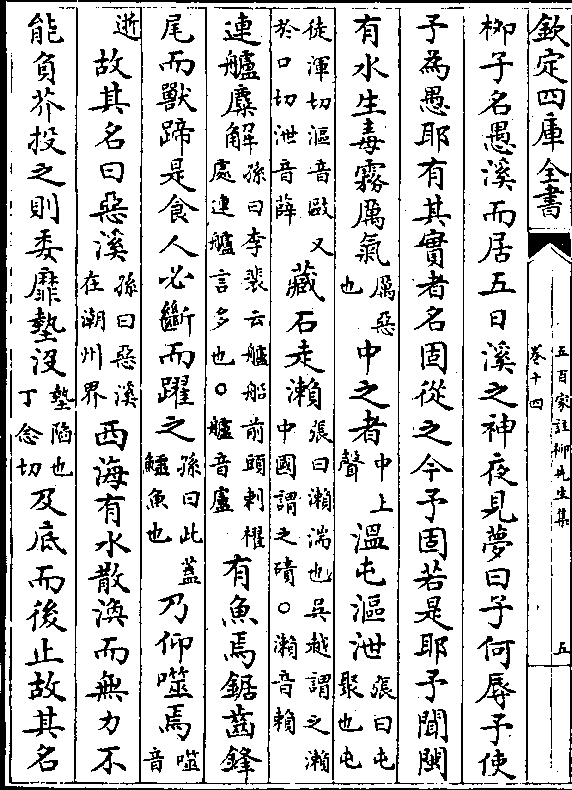 欽定四庫全書
五百家註柳先生集
卷十四
五
柳子名愚溪而居五日溪之神夜見夢曰子何辱予使
予為愚耶有其實者名固從之今予固若是耶予聞閩
有水生毒霧厲氣厲惡也中之者中上聲溫屯漚泄張曰屯聚也屯
徒渾切漚音歐又於口切泄音薛藏石走瀨張曰瀨湍也吳越謂之瀨中國謂之磧○瀨音賴
連艫麋解孫曰李裴云艫船前頭刺櫂處連艫言多也○艫音盧有魚焉鋸齒鋒
尾而獸蹄是食人必斷而躍之孫曰此蓋鱷魚也乃仰噬焉噬音
逝故其名曰惡溪孫曰惡溪在潮州界西海有水散渙而無力不
能負芥投之則委靡墊沒墊陷也丁念切及底而後止故其名